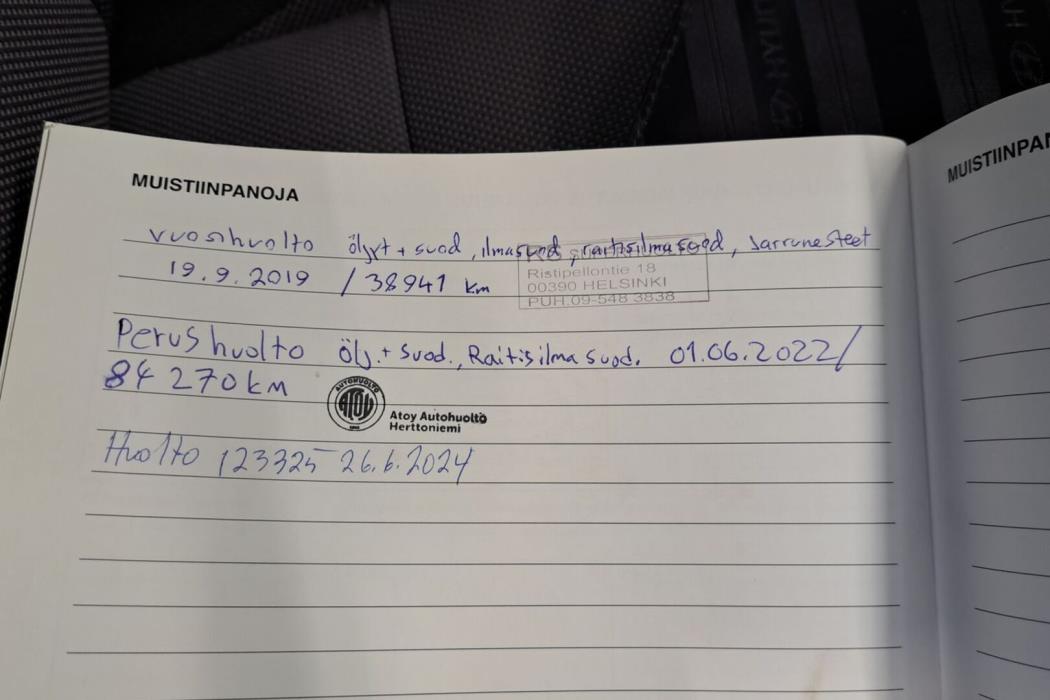 HYUN
MUISTIINPANOJA
MUISTIINPA
vuosihuolto öljyt + suod, ilmasuod, raitisilmasuod, Jarrunesteet
19.9.2019 / 38941 km
Ristipellontie 18
00390 HELSINKI
PUH.09-548 3838
Perushuolto Ölj.+ Suod., Raitisilmasuod. 01.06.2022/
84 270 km
AUTOHUOLTO
ATOY
Atoy Autohuolto
Herttoniemi
Huolto 123325 26.6.2024